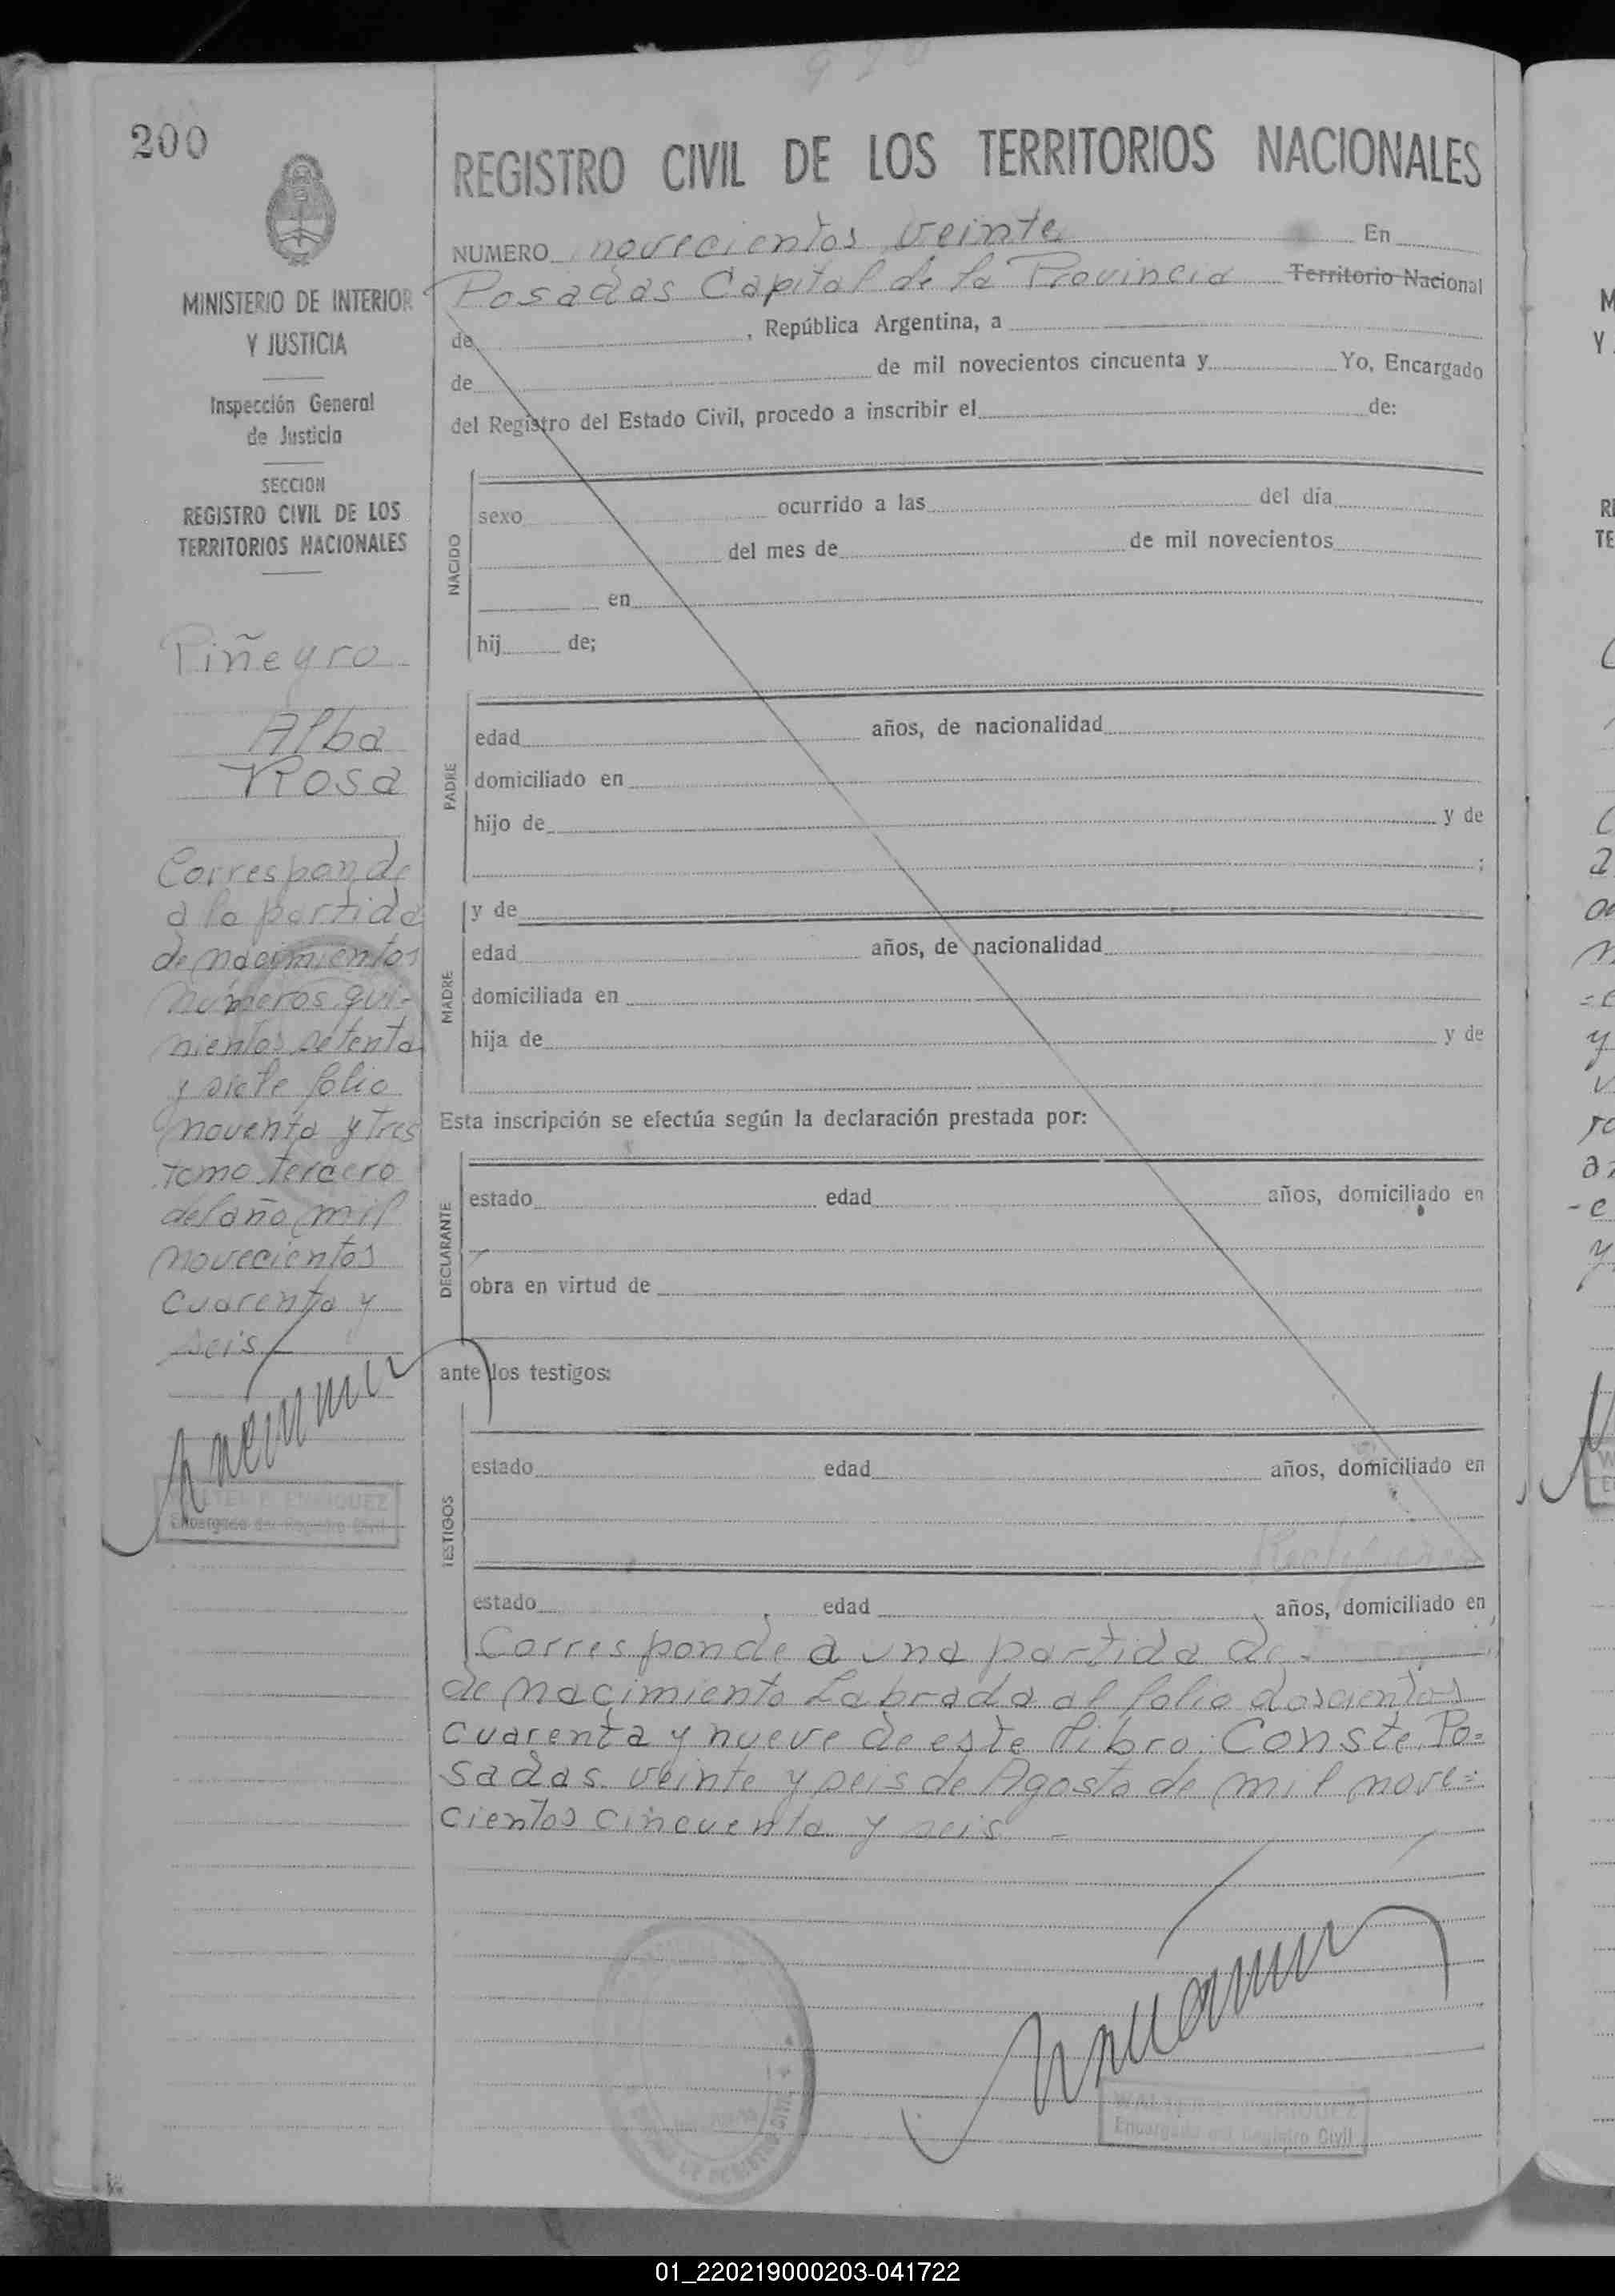 920
200
REGISTRO CIVIL DE LOS TERRITORIOS NACIONALES
NUMERO novecientos veinte En
Posadas Capital de la Provincia Territorio Nacional
de , República Argentina, a
de de mil novecientos cincuenta y Yo, Encargado
del Registro del Estado Civil, procedo a inscribir el de:
MINISTERIO DE INTERIOR
Y JUSTICIA
Inspección General
de Justicia
SECCION
REGISTRO CIVIL DE LOS
TERRITORIOS NACIONALES
Piñeyro
Alba
Rosa
Corresponde
a la partida
de nacimientos
números qui-
nientos setenta
y siete folio
noventa y tres
tomo tercero
del año mil
novecientos
cuarenta y
seis
WALTER E. ENRIQUEZ
Encargado del Registro Civil
NACIDO
sexo ocurrido a las del día
del mes de de mil novecientos
en
hij de;
PADRE
edad años, de nacionalidad
domiciliado en
hijo de y de
;
y de
MADRE
edad años, de nacionalidad
domiciliada en
hija de y de
Esta inscripción se efectúa según la declaración prestada por:
DECLARANTE
estado edad años, domiciliado en
obra en virtud de
ante los testigos:
TESTIGOS
estado edad años, domiciliado en
estado , edad , años, domiciliado en
Corresponde a una partida de
de nacimiento labrada al folio doscientos
cuarenta y nueve de este libro. Conste, Po=
sadas veinte y seis de Agosto de mil nove=
cientos cincuenta y seis -
WALTER E. ENRIQUEZ
Encargado del Registro Civil
01_220219000203-041722